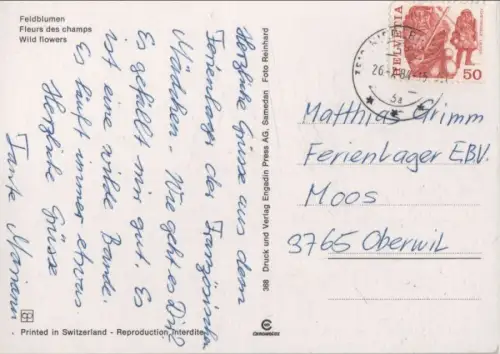 Feldblumen
Fleurs des champs
Wild flowers
Herzliche Grüsse aus dem
Ferienlager der Französischen
Mädchen. Wie geht es Dir?
Es gefällt mir gut. Es
ist eine wilde Bande.
Es läuft immer etwas.
Herzliche Grüsse
Tante Mariann
Printed in Switzerland - Reproduction interdite
368 Druck und Verlag Engadin Press AG, Samedan Foto Reinhard
HELVETIA
50
Matthias Grimm
Ferienlager EBV.
Moos
3765 Oberwil